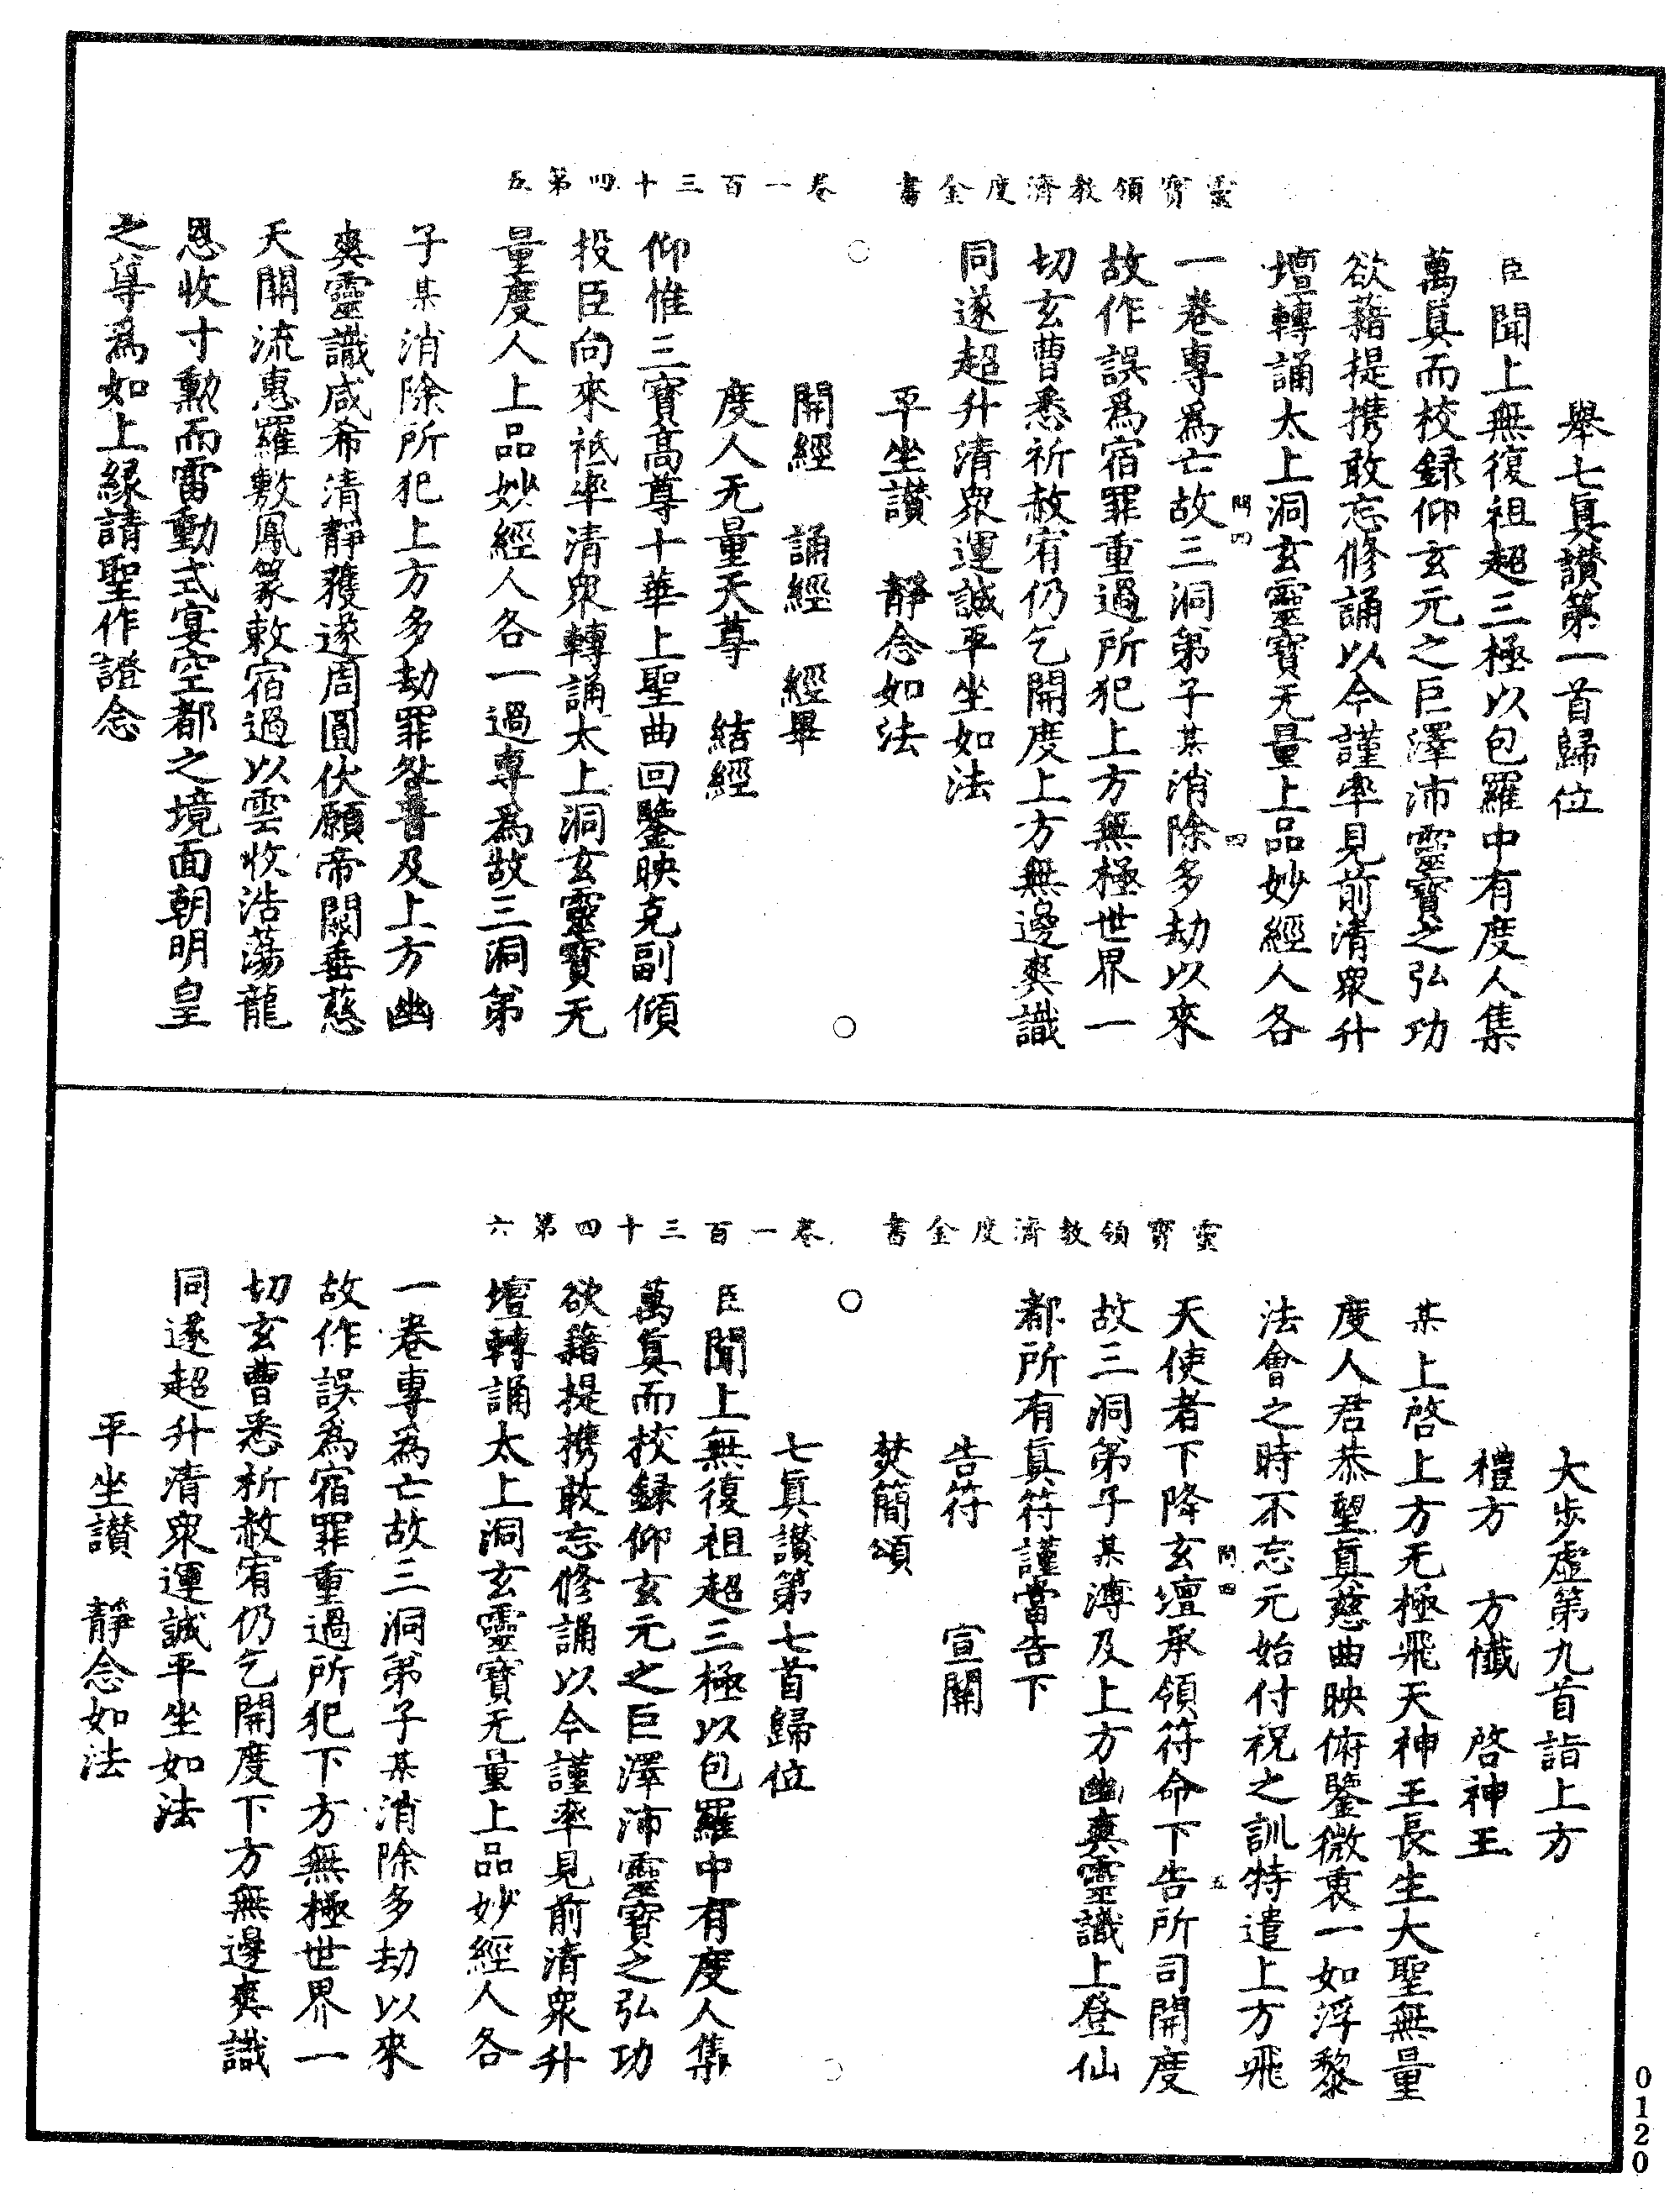 靈寶領教濟度金書　卷一百三十四第五
舉七眞讃第一首歸位
臣聞上無復祖超三極以包羅中有度人集
萬眞而校録仰玄元之巨澤沛靈寶之弘功
欲藉提携敢忘修誦以今謹率見前清衆升
壇轉誦太上洞玄靈寶无量上品妙經人各
問四　四
一卷專爲亡故三洞弟子某消除多劫以來
故作誤爲宿罪重過所犯上方無極世界一
切玄曹悉祈赦宥仍乞開度上方無邊爽識
同遂超升清衆運誠平坐如法
平坐讃　靜念如法
開經　誦經　經畢
度人无量天尊　結經
仰惟三寶高尊十華上聖曲回鑒映克副傾
投臣向來祇率清衆轉誦太上洞玄靈寶无
量度人上品妙經人各一過專爲故三洞弟
子某消除所犯上方多劫罪咎普及上方幽
爽靈識咸希清靜獲遂周圓伏願帝闕垂慈
天關流惠羅敷鳳篆敕宿過以雲收浩蕩龍
恩收寸勲而雷動式宴空都之境面朝明皇
之尊爲如上縁請聖作證念
靈寶領教濟度金書　卷一百三十四第六
大步虛第九首詣上方
禮方　方懺　啓神王
某上啓上方无極飛天神王長生大聖無量
度人君恭望眞慈曲映俯鑒微衷一如浮黎
法會之時不忘元始付祝之訓特遣上方飛
問四　五
天使者下降玄壇承領符命下告所司開度
故三洞弟子某溥及上方幽爽靈識上登仙
都所有眞符謹當告下
告符　宣關
焚簡頌
七眞讃第七首歸位
臣聞上無復祖超三極以包羅中有度人集
萬眞而校録仰玄元之巨澤沛靈寶之弘功
欲藉提携敢忘修誦以今謹率見前清衆升
壇轉誦太上洞玄靈寶无量上品妙經人各
一卷專爲亡故三洞弟子某消除多劫以來
故作誤爲宿罪重過所犯下方無極世界一
切玄曹悉祈赦宥仍乞開度下方無邊爽識
同遂超升清衆運誠平坐如法
平坐讃　靜念如法
0120